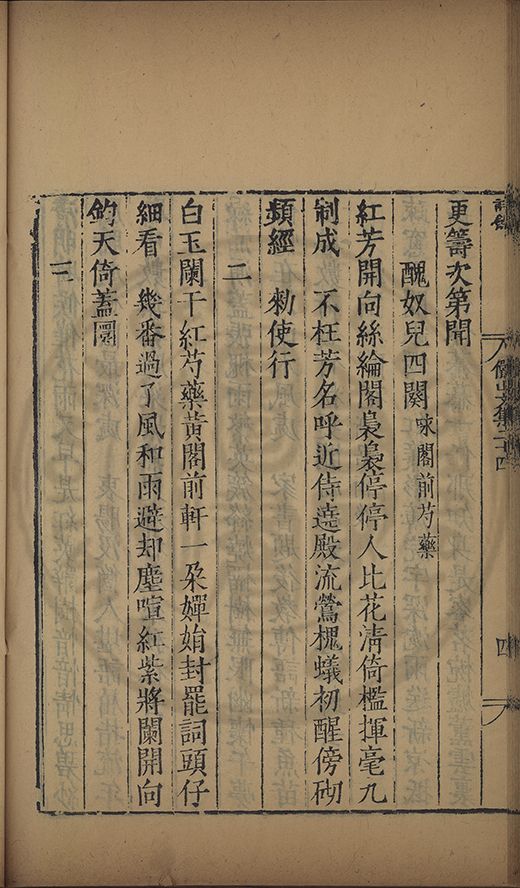 更籌次第開
醜奴兒四闋 咏閣前芍藥
紅芳開向絲綸閣裊裊停停人比花淸倚檻揮毫九
制成　不枉芳名呼近侍遶殿流鶯槐蟻初醒傍砌
頻經　勑使行
二
白玉闌干紅芍藥黃閣前軒一朶嬋娟封罷詞頭仔
細看　幾番過了風和雨避却塵喧紅紫將闌開向
鈞天倚蓋圓
三
四